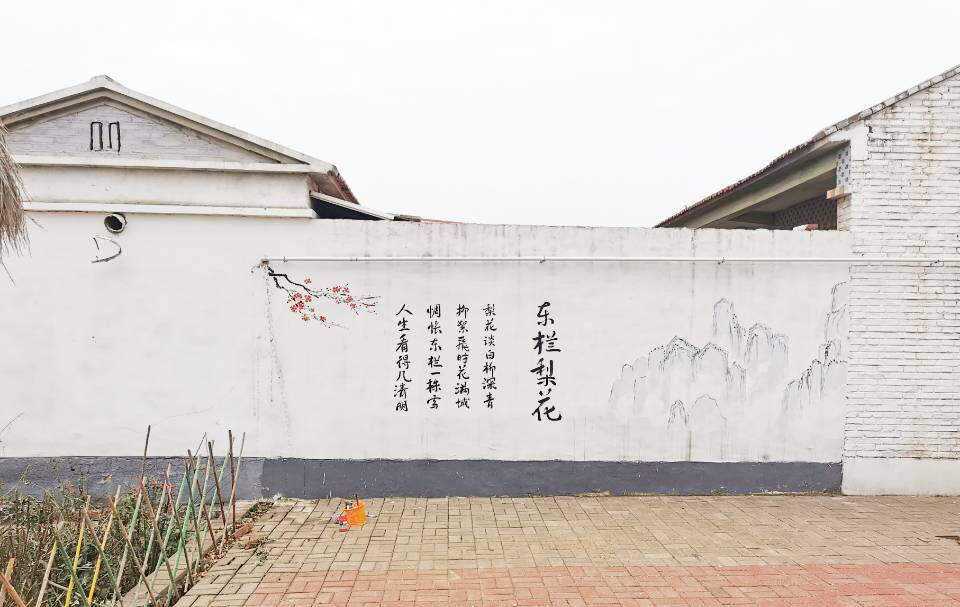 东栏梨花
梨花淡白柳深青
柳絮飛時花满城
惆怅东栏一株雪
人生看得几清明